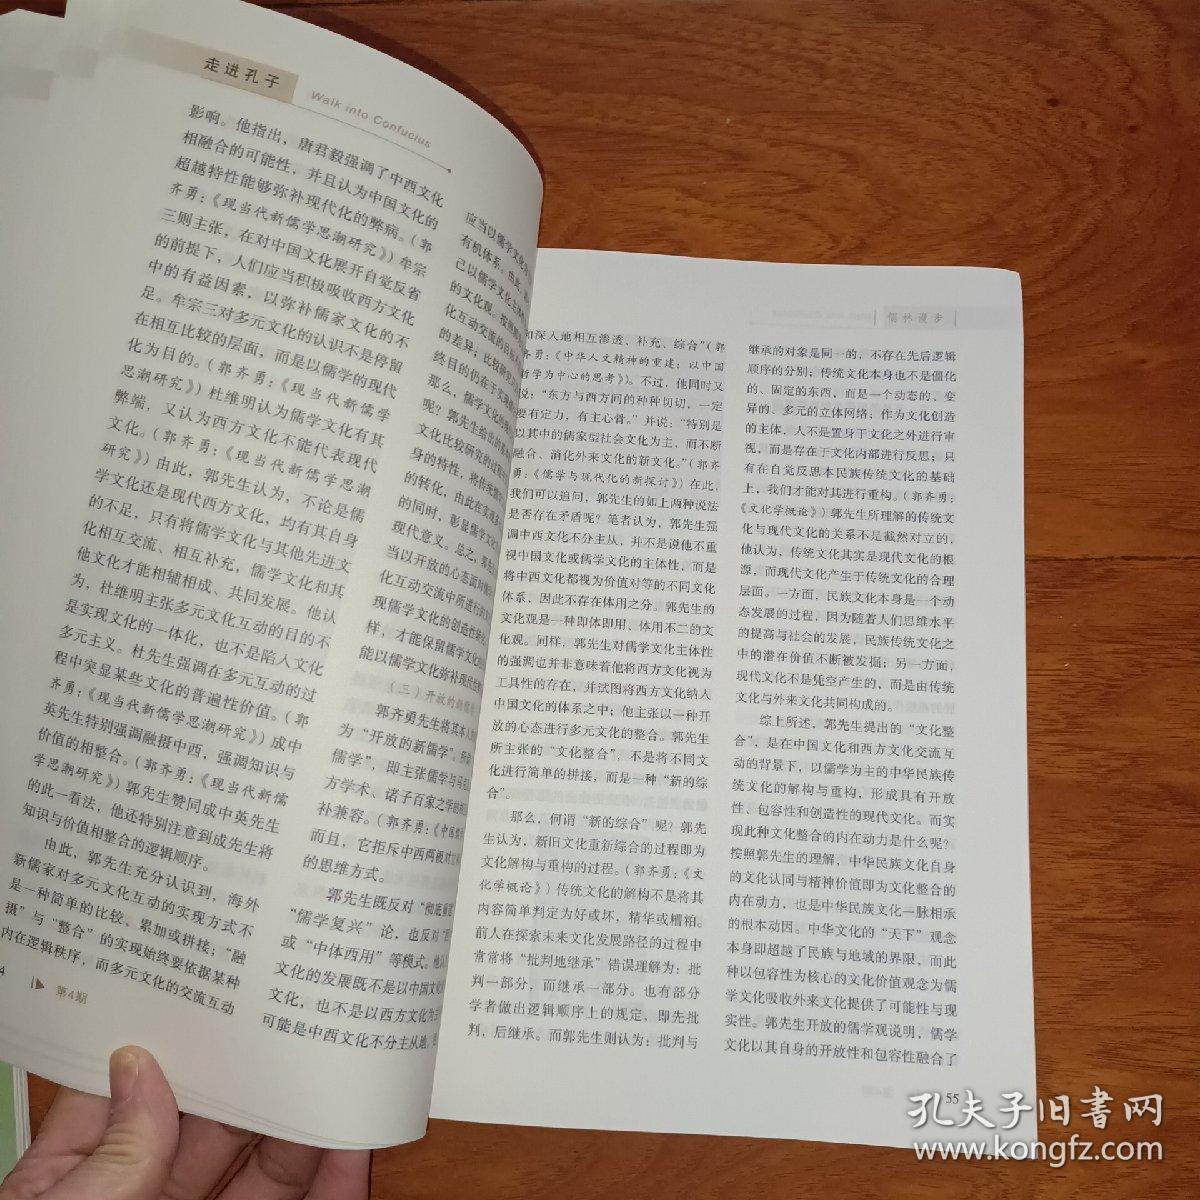 走进孔子
Walk into Confucius
影响。他指出，唐君毅强调了中西文化
相融合的可能性，并且认为中国文化的
超越特性能够弥补现代化的弊病。（郭
齐勇：《现当代新儒学思潮研究》）牟宗
三则主张，在对中国文化展开自觉反省
的前提下，人们应当积极吸收西方文化
中的有益因素，以弥补儒家文化的不
足。牟宗三对多元文化的认识不是停留
在相互比较的层面，而是以儒学的现代
化为目的。（郭齐勇：《现当代新儒学
思潮研究》）杜维明认为儒学文化有其
弊端，又认为西方文化不能代表现代
文化。（郭齐勇：《现当代新儒学思潮
研究》）由此，郭先生认为，不论是儒
学文化还是现代西方文化，均有其自身
的不足，只有将儒学文化与其他先进文
化相互交流、相互补充，儒学文化和其
他文化才能相辅相成、共同发展。他认
为，杜维明主张多元文化互动的目的不
是实现文化的一体化，也不是陷入文化
多元主义。杜先生强调在多元互动的过
程中突显某些文化的普遍性价值。（郭
齐勇：《现当代新儒学思潮研究》）成中
英先生特别强调融摄中西，强调知识与
价值的相整合。（郭齐勇：《现当代新儒
学思潮研究》）郭先生赞同成中英先生
的此一看法，他还特别注意到成先生将
知识与价值相整合的逻辑顺序。
由此，郭先生充分认识到，海外
新儒家对多元文化互动的实现方式不
是一种简单的比较、累加或拼接；“融
摄”与“整合”的实现始终要依据某种
内在逻辑秩序，而多元文化的交流互动
4
第4期
应当以儒学文化
有机体系。由此，
己以儒学文化主
的文化观。按照
化互动交流的目
的差异；比较研究
终目的仍在于实现
那么，儒学文化的
呢？郭先生给出的
文化比较研究的过程
身的特性，将传统儒
的转化，由此在实现
的同时，彰显儒学文化
现代意义。总之，郭
当以开放的心态面对
化互动交流中所进行
现儒学文化的创造性转
样，才能保留儒学文化
能以儒学文化弥补现代性
（三）开放的新儒
郭齐勇先生将其本人
为“开放的新儒学”。所
儒学”，即主张儒学与马
方学术、诸子百家之学的
补兼容。（郭齐勇：《中国
而且，它拒斥中西两极对立
的思维方式。
郭先生既反对“彻底重
“儒学复兴”论，也反对“
或“中体西用”等模式。他
文化的发展既不是以中国文化
文化，也不是以西方文化为
可能是中西文化不分主从地、
儒林漫步
和深入地相互渗透、补充、综合”（郭
齐勇：《中华人文精神的重建：以中国
哲学为中心的思考》）。不过，他同时又
说：“东方与西方间的种种切切，一定
要有定力，有主心骨。”并说：“特别是
以其中的儒家型社会文化为主，而不断
融合、消化外来文化的新文化。”（郭齐
勇：《儒学与现代化的新探讨》）在此，
我们可以追问，郭先生的如上两种说法
是否存在矛盾呢？笔者认为，郭先生强
调中西文化不分主从，并不是说他不重
视中国文化或儒学文化的主体性，而是
将中西文化都视为价值对等的不同文化
体系，因此不存在体用之分。郭先生的
文化观是一种即体即用、体用不二的文
化观。同样，郭先生对儒学文化主体性
的强调也并非意味着他将西方文化视为
工具性的存在，并试图将西方文化纳入
中国文化的体系之中；他主张以一种开
放的心态进行多元文化的整合。郭先生
所主张的“文化整合”，不是将不同文
化进行简单的拼接，而是一种“新的综
合”。
那么，何谓“新的综合”呢？郭先
生认为，新旧文化重新综合的过程即为
文化解构与重构的过程。（郭齐勇：《文
化学概论》）传统文化的解构不是将其
内容简单判定为好或坏，精华或糟粕。
前人在探索未来文化发展路径的过程中
常常将“批判地继承”错误理解为：批
判一部分，而继承一部分。也有部分
学者做出逻辑顺序上的规定，即先批
判，后继承。而郭先生则认为：批判与
继承的对象是同一的，不存在先后逻辑
顺序的分别；传统文化本身也不是僵化
的、固定的东西，而是一个动态的、变
异的、多元的立体网络；作为文化创造
的主体，人不是置身于文化之外进行审
视，而是存在于文化内部进行反思；只
有在自觉反思本民族传统文化的基础
上，我们才能对其进行重构。（郭齐勇：
《文化学概论》）郭先生所理解的传统文
化与现代文化的关系不是截然对立的，
他认为，传统文化其实是现代文化的根
源，而现代文化产生于传统文化的合理
层面。一方面，民族文化本身是一个动
态发展的过程，因为随着人们思维水平
的提高与社会的发展，民族传统文化之
中的潜在价值不断被发掘；另一方面，
现代文化不是凭空产生的，而是由传统
文化与外来文化共同构成的。
综上所述，郭先生提出的“文化整
合”，是在中国文化和西方文化交流互
动的背景下，以儒学为主的中华民族传
统文化的解构与重构，形成具有开放
性、包容性和创造性的现代文化。而实
现此种文化整合的内在动力是什么呢？
按照郭先生的理解，中华民族文化自身
的文化认同与精神价值即为文化整合的
内在动力，也是中华民族文化一脉相承
的根本动因。中华文化的“天下”观念
本身即超越了民族与地域的界限，而此
种以包容性为核心的文化价值观念为儒
学文化吸收外来文化提供了可能性与现
实性。郭先生开放的儒学观说明，儒学
文化以其自身的开放性和包容性融合了
55
孔夫子旧书网
www.kongfz.com